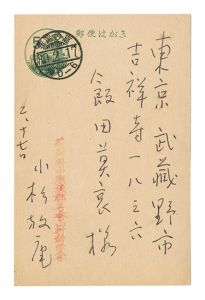 郵便はがき
東京 武藏野市
吉祥寺一八三六
飯田莫哀様
二、十七日
小杉放庵